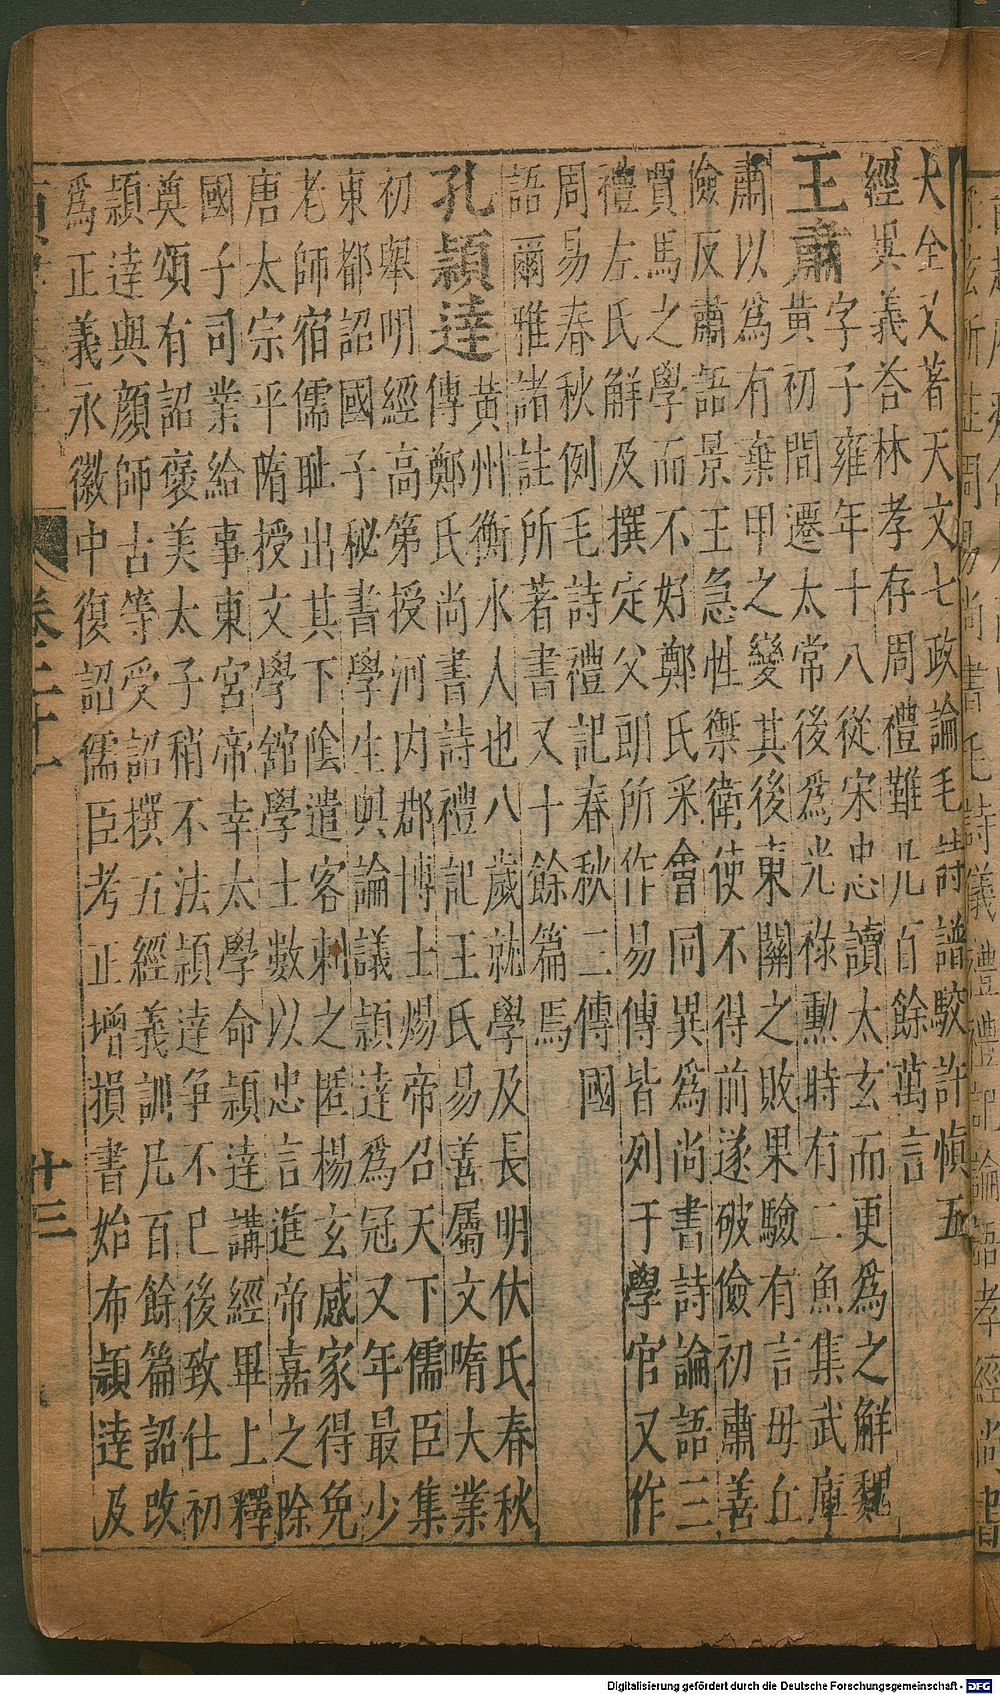 大全又著天文七政論毛詩譜駮許慎五
經異義荅林孝存周禮難凡百餘萬言
王肅 字子雍年十八從宋忠讀太玄而更爲之解魏
黃初間遷太常後爲光祿勳時有二魚集武庫
肅以爲有棄甲之變其後東關之敗果驗有言毋丘
儉反肅語景王急性禦衛使不得前遂破儉初肅善
賈馬之學而不好鄭氏采會同異爲尚書詩論語三
禮左氏解及撰定父朗所作易傳皆列于學官又作
周易春秋例毛詩禮記春秋二傳國
語爾雅諸註所著書又十餘篇焉
孔穎達 黃州衡水人也八歲就學及長明伏氏春秋
傳鄭氏尚書詩禮記王氏易善屬文隋大業
初舉明經高第授河内郡博士煬帝召天下儒臣集
東都詔國子秘書學生與論議穎達爲冠又年最少
老師宿儒耻出其下陰遣客刺之匿楊玄感家得免
唐太宗平隋授文學舘學士數以忠言進帝嘉之除
國子司業給事東宮帝幸太學命穎達講經畢上釋
奠頌有詔褒美太子稍不法穎達争不已後致仕初
穎達與顏師古等受詔撰五經義訓凡百餘篇詔改
爲正義永徽中復詔儒臣考正增損書始布穎達及
卷二十一
十三
Digitalisierung gefördert durch die Deutsche Forschungsgemeinschaft - DFG